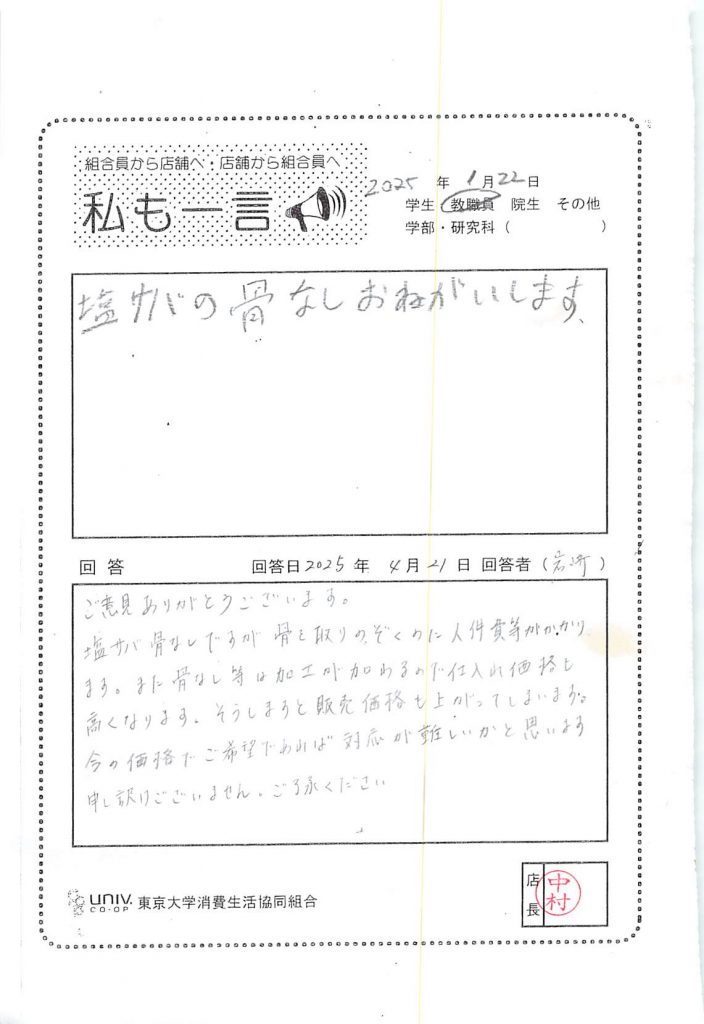 組合員から店舗へ・店舗から組合員へ
私も一言
2025 年 1月22日
学生 教職員 院生 その他
学部・研究科 ( )
塩サバの骨なしおねがいします。
回答 回答日2025 年 4月21日 回答者 (岩崎)
ご意見ありがとうございます。
塩サバ骨なしですが 骨を取りのぞくのに人件費等がかかり
ます。また骨なし等は加工が加わるので仕入れ価格も
高くなります。そうしますと販売価格も上がってしまいます。
今の価格でご希望であれば対応が難しいかと思います
申し訳けございません。ご了承ください
店長
中村
UNIV. CO-OP 東京大学消費生活協同組合